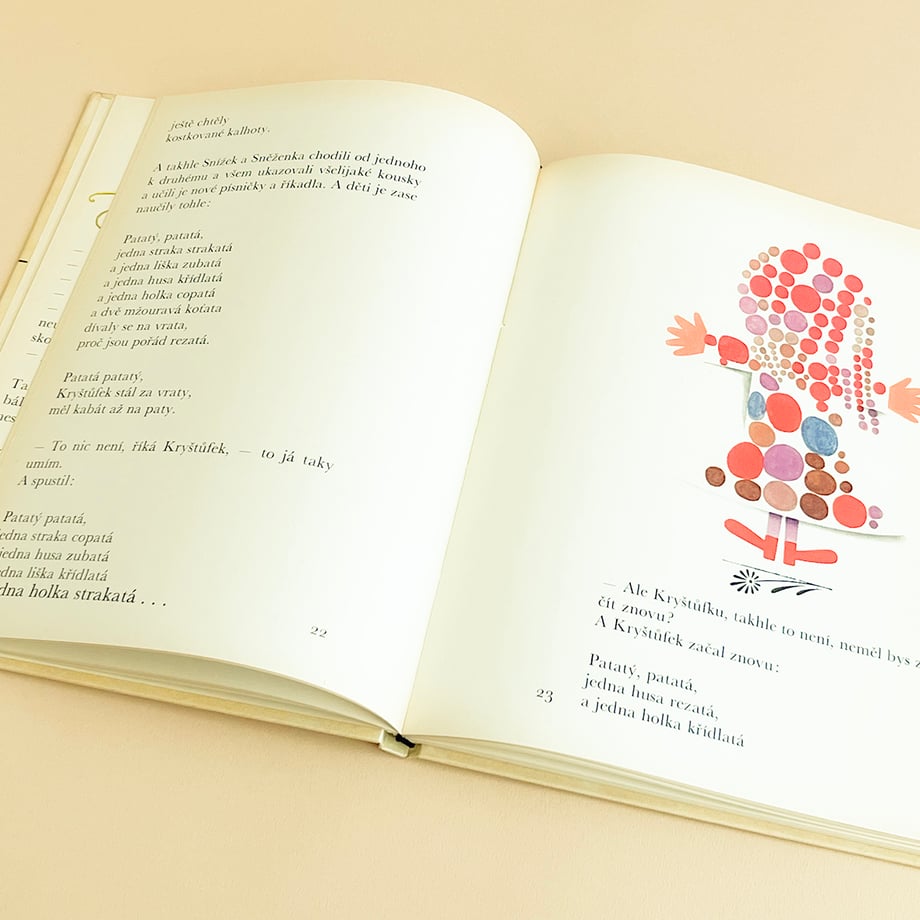 ještě chtěly
kostkované kalhoty.
A takhle Snížek a Sněženka chodili od jednoho
k druhému a všem ukazovali všelijaké kousky
a učili je nové písničky a říkadla. A děti je zase
naučily tohle:
Patatý, patatá,
jedna straka strakatá
a jedna liška zubatá
a jedna husa křídlatá
a jedna holka copatá
a dvě mžouravá koťata
dívaly se na vrata,
proč jsou pořád rezatá.
Patatá patatý,
Kryštůfek stál za vraty,
měl kabát až na paty.
– To nic není, říká Kryštůfek, – to já taky
umím.
A spustil:
Patatý patatá,
jedna straka copatá
jedna husa zubatá
jedna liška křídlatá
jedna holka strakatá . . .
22
– Ale Kryštůfku, takhle to není, neměl bys
čít znovu?
A Kryštůfek začal znovu:
Patatý, patatá,
jedna husa rezatá,
a jedna holka křídlatá
23